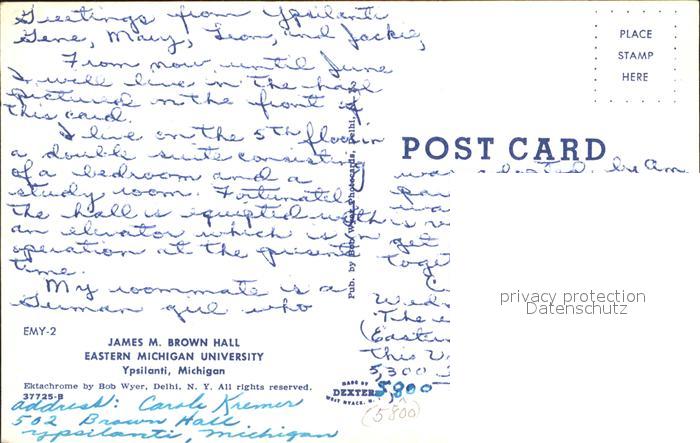 Greetings from Ypsilanti
Gene, Mary, Leon, and Jackie,
From now until June
I will live in the hall
pictured on the front of
this card.
I live on the 5th floor in
a double suite consisting
of a bedroom and a
study room. Fortunately
the hall is equipted with
an elevator which is in
operation at the present
time.
My roommate is a
German girl who
EMY-2
JAMES M. BROWN HALL
EASTERN MICHIGAN UNIVERSITY
Ypsilanti, Michigan
Ektachrome by Bob Wyer, Delhi, N. Y. All rights reserved.
37725-B
address: Carole Kremer
502 Brown Hall
Ypsilanti, Michigan
Pub. by Bob Wyer Photocards, Delhi, N.
PLACE
STAMP
HERE
POST CARD
was by Am
get
toget
Wedn
The e
(Easter
this
5,300
5,800
(5800)
MADE BY
DEXTER
WEST NYACK, N.
privacy protection
Datenschutz